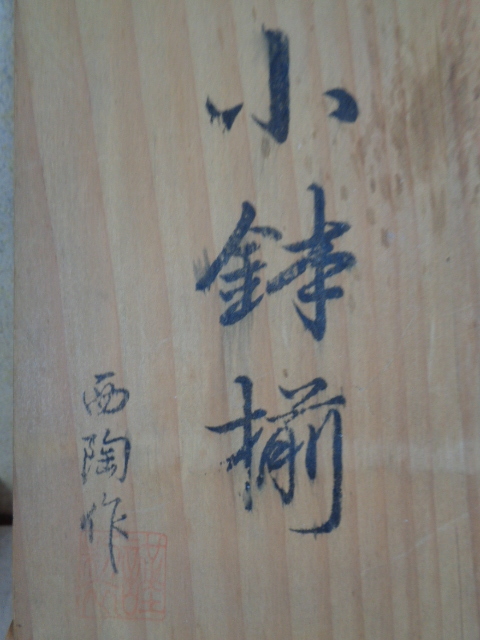 小鉢揃
西陶作